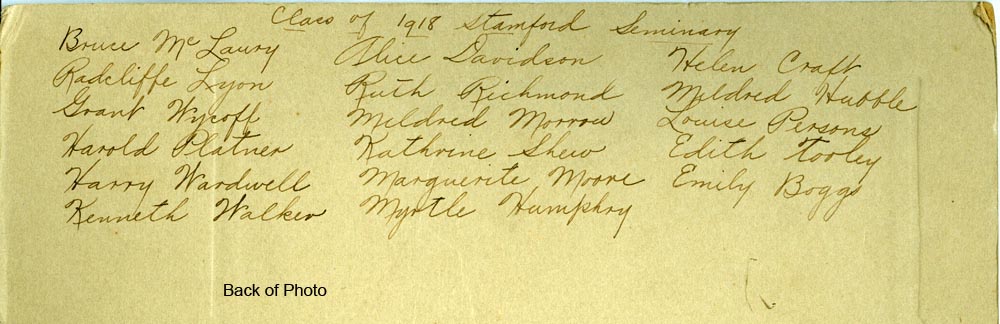 Class of 1918 Stamford Seminary
Bruce McLaury
Radcliffe Lyon
Grant Wycoff
Harold Platner
Harry Wardwell
Kenneth Walker
Alice Davidson
Ruth Richmond
Mildred Morrow
Kathrine Shew
Marguerite Moore
Myrtle Humphry
Helen Craft
Mildred Hubble
Louise Persons
Edith Tooley
Emily Boggs
Back of Photo